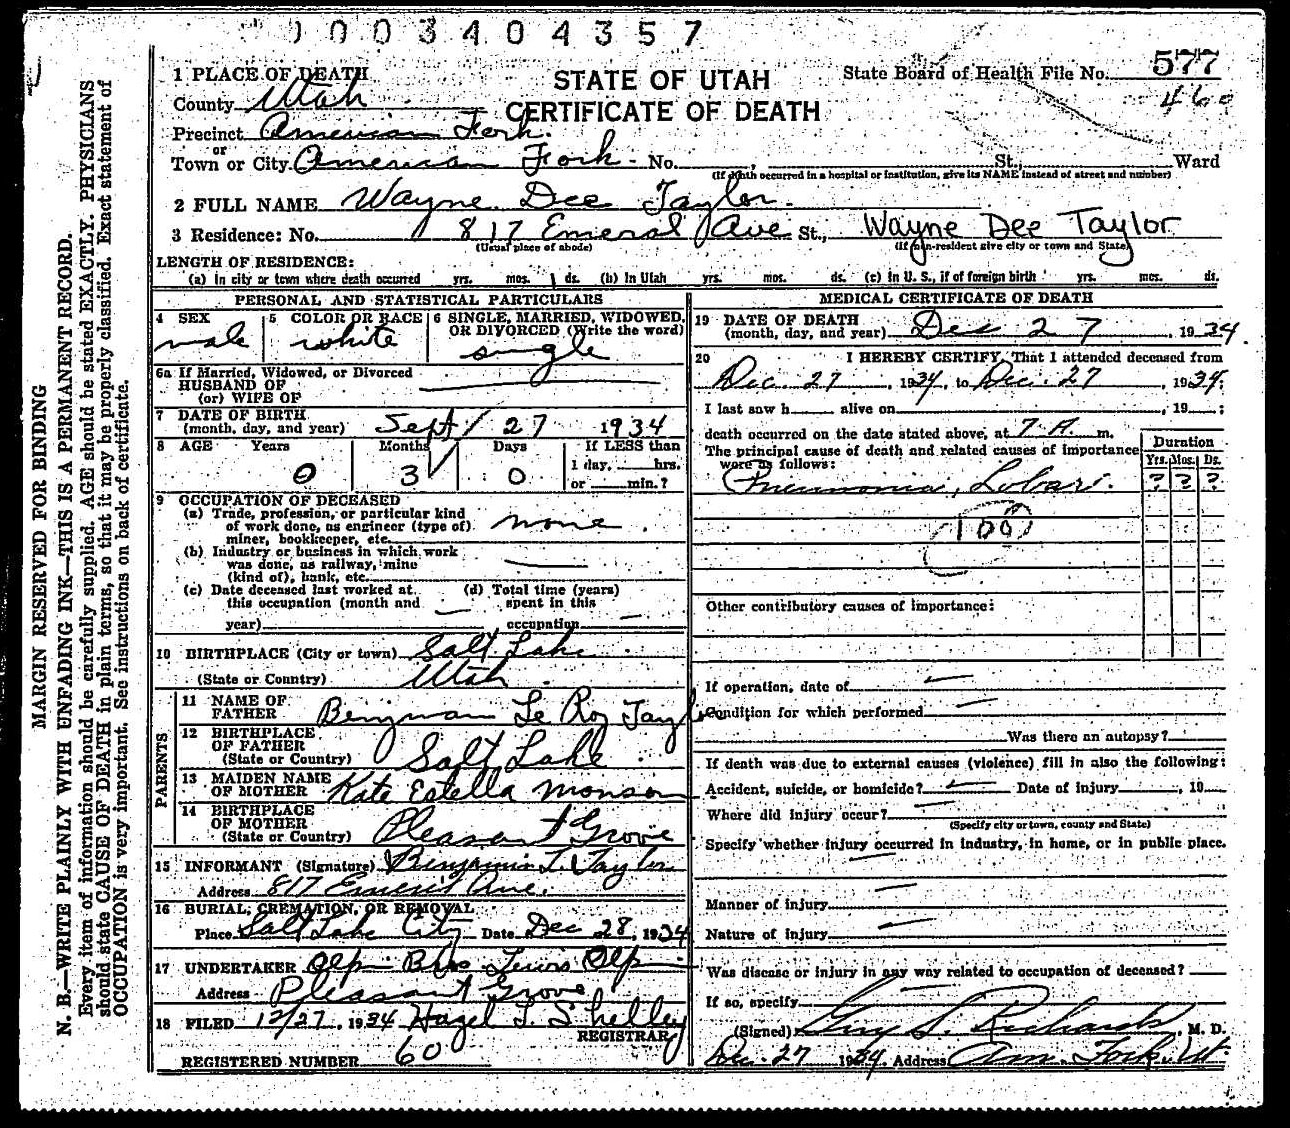 0003404357
577
460
STATE OF UTAH
CERTIFICATE OF DEATH
State Board of Health File No.
1 PLACE OF DEATH
County Utah
Precinct American Fork.
or
Town or City American Fork - No. , St., Ward
(If death occurred in a hospital or institution, give its NAME instead of street and number)
2 FULL NAME Wayne Dee Taylor.
3 Residence: No. 817 Emeral Ave St., Wayne Dee Taylor
(Usual place of abode) (If non-resident give city or town and State)
LENGTH OF RESIDENCE:
(a) In city or town where death occurred yrs. mos. 1 ds. (b) In Utah yrs. mos. ds. (c) in U. S., if of foreign birth yrs. mos. ds.
PERSONAL AND STATISTICAL PARTICULARS
4 SEX
male
5 COLOR OR RACE
white
6 SINGLE, MARRIED, WIDOWED,
OR DIVORCED (Write the word)
single
6a If Married, Widowed, or Divorced
HUSBAND OF
(or) WIFE OF
7 DATE OF BIRTH
(month, day, and year) Sept / 27 1934
8 AGE Years Months Days If LESS than
0 3 0 1 day, hrs.
or min.?
9 OCCUPATION OF DECEASED
(a) Trade, profession, or particular kind
of work done, as engineer (type of)
miner, bookkeeper, etc. none.
(b) Industry or business in which work
was done, as railway, mine
(kind of), bank, etc.
(c) Date deceased last worked at
this occupation (month and
year)
(d) Total time (years)
spent in this
occupation
10 BIRTHPLACE (City or town) Salt Lake
(State or Country) Utah.
PARENTS
11 NAME OF
FATHER Benjman Le Roy Taylor
12 BIRTHPLACE
OF FATHER
(State or Country) Salt Lake
13 MAIDEN NAME
OF MOTHER Kate Estella Monson
14 BIRTHPLACE
OF MOTHER
(State or Country) Pleasant Grove
15 INFORMANT (Signature) Benjamin L. Taylor
Address 817 Emeril Ave.
16 BURIAL, CREMATION, OR REMOVAL
Place Salt Lake City Date Dec 28, 1934
17 UNDERTAKER Olpin Bros Lewis Olpin
Address Pleasant Grove
18 FILED 12/27, 1934 Hazel L. Shelley
REGISTRAR
REGISTERED NUMBER 60
MEDICAL CERTIFICATE OF DEATH
19 DATE OF DEATH
(month, day, and year) Dec 27 1934.
20 I HEREBY CERTIFY, That I attended deceased from
Dec. 27, 1934, to Dec. 27, 1934;
I last saw h alive on , 19 ;
death occurred on the date stated above, at 7 A. m.
The principal cause of death and related causes of importance
were as follows:
Duration
Yrs. Mos. Ds.
Pneumonia, Lobar. ? ? ?
100
Other contributory causes of importance:
If operation, date of
Condition for which performed
Was there an autopsy?
If death was due to external causes (violence) fill in also the following:
Accident, suicide, or homicide? Date of injury , 19
Where did injury occur?
(Specify city or town, county and State)
Specify whether injury occurred in industry, in home, or in public place.
Manner of injury
Nature of injury
Was disease or injury in any way related to occupation of deceased?
If so, specify
(Signed) Guy S. Richards, M. D.
Dec. 27 1934, Address Am. Fork. Ut.
MARGIN RESERVED FOR BINDING
N. B.—WRITE PLAINLY WITH UNFADING INK—THIS IS A PERMANENT RECORD.
Every item of information should be carefully supplied. AGE should be stated EXACTLY. PHYSICIANS
should state CAUSE OF DEATH in plain terms, so that it may be properly classified. Exact statement of
OCCUPATION is very important. See instructions on back of certificate.